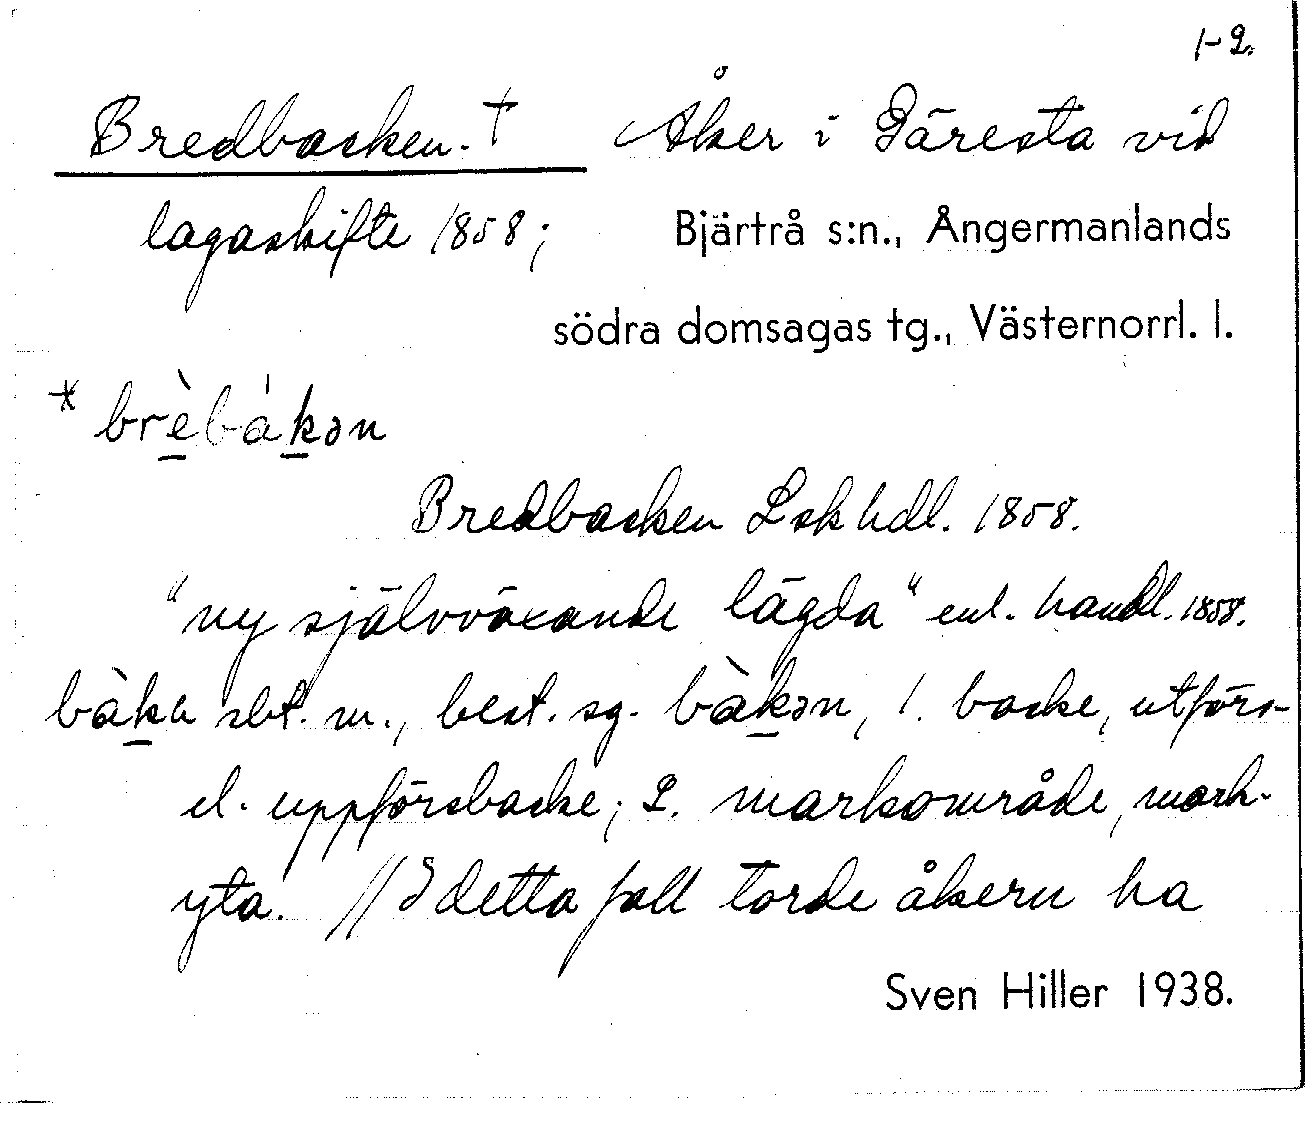 1-2.
Bredbacken. † Åker i Gäresta vid
lagaskifte 1858; Bjärtrå s:n., Ångermanlands
södra domsagas tg., Västernorrl. l.
* brèbákən
Bredbacken Lskhdl. 1858.
"ny självväxande lägda" enl. handl. 1858.
bàka sbt. m., best. sg. bàkən, 1. backe, utförs-
el. uppförsbacke; 2. markområde, mark-
yta. // I detta fall torde åkern ha
Sven Hiller 1938.